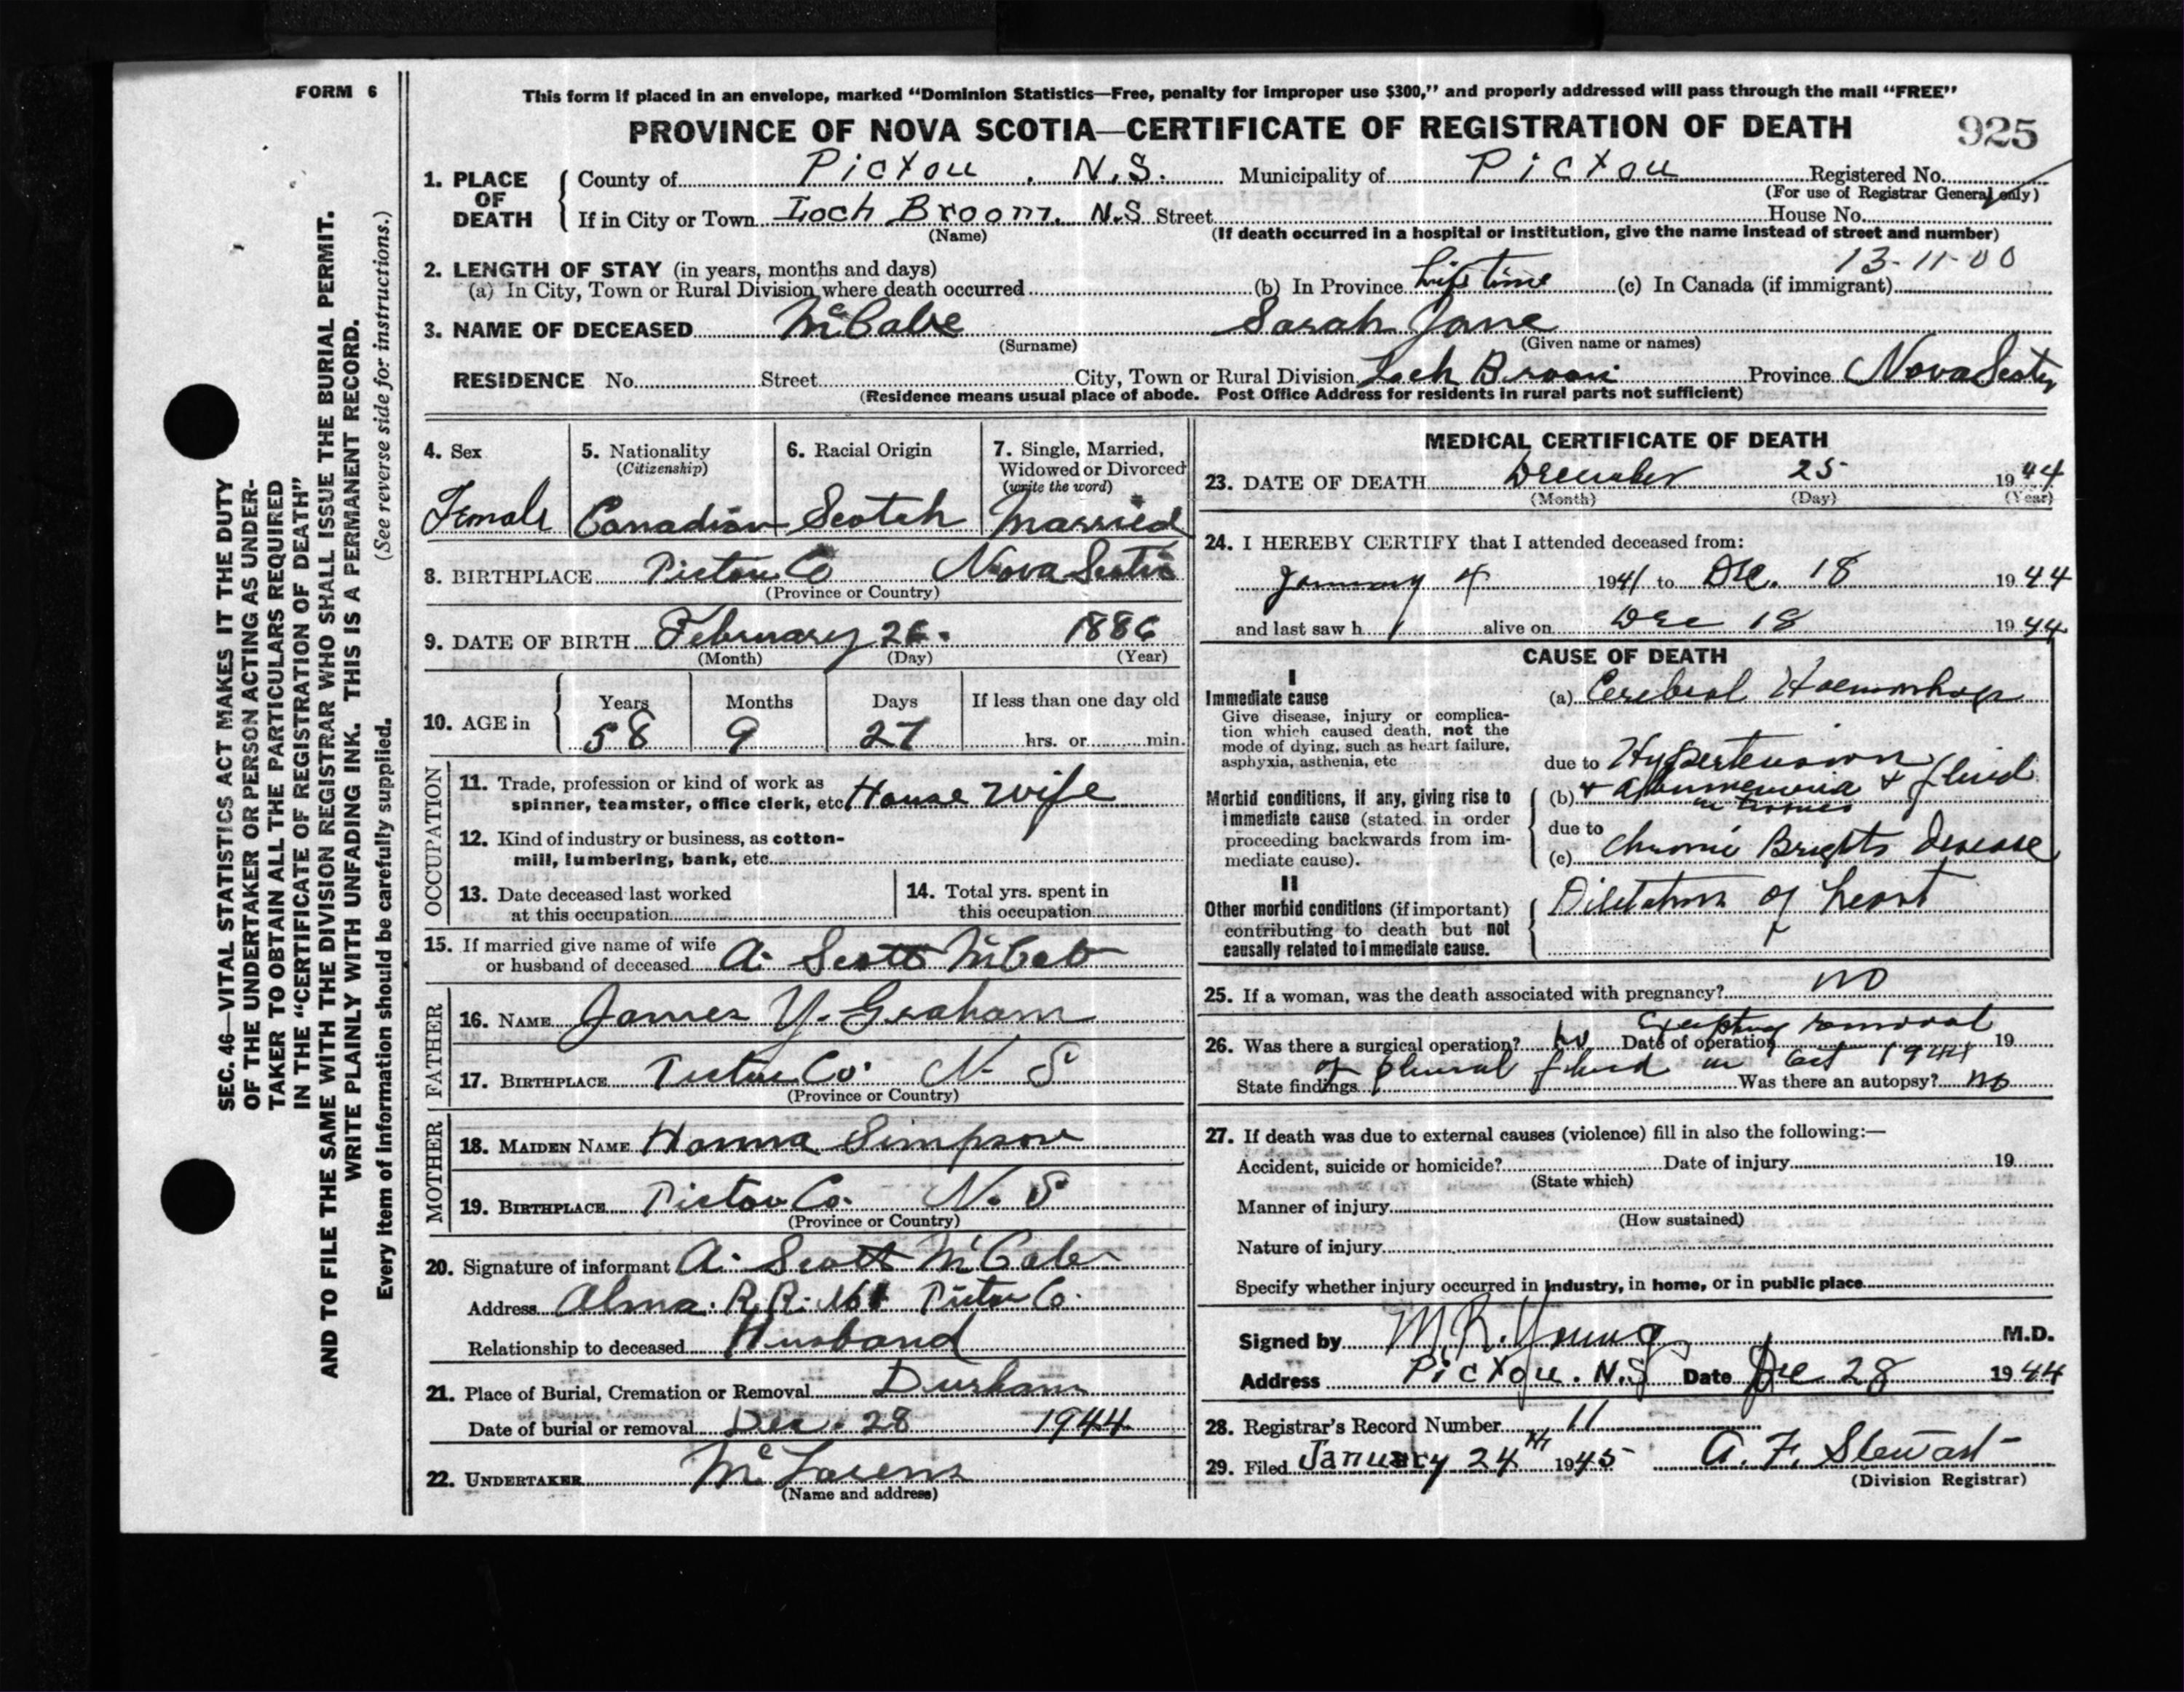 FORM 6
This form if placed in an envelope, marked “Dominion Statistics—Free, penalty for improper use $300,” and properly addressed will pass through the mail “FREE”
PROVINCE OF NOVA SCOTIA—CERTIFICATE OF REGISTRATION OF DEATH 925
1. PLACE OF DEATH
County of Pictou, N.S. Municipality of Pictou Registered No.
(For use of Registrar General only)
If in City or Town Loch Broom. N.S Street House No.
(Name) (If death occurred in a hospital or institution, give the name instead of street and number)
2. LENGTH OF STAY (in years, months and days) 13-11-00
(a) In City, Town or Rural Division where death occurred (b) In Province Life time (c) In Canada (if immigrant)
3. NAME OF DECEASED McCabe Sarah Jane
(Surname) (Given name or names)
RESIDENCE No. Street City, Town or Rural Division Loch Broom Province Nova Scotia
(Residence means usual place of abode. Post Office Address for residents in rural parts not sufficient)
4. Sex
Female
5. Nationality
(Citizenship)
Canadian
6. Racial Origin
Scotch
7. Single, Married,
Widowed or Divorced
(write the word)
Married
8. BIRTHPLACE Pictou Co Nova Scotia
(Province or Country)
9. DATE OF BIRTH February 26. 1886
(Month) (Day) (Year)
10. AGE in
Years Months Days If less than one day old
58 9 27 hrs. or min.
OCCUPATION
11. Trade, profession or kind of work as
spinner, teamster, office clerk, etc House wife
12. Kind of industry or business, as cotton-
mill, lumbering, bank, etc.
13. Date deceased last worked
at this occupation
14. Total yrs. spent in
this occupation
15. If married give name of wife
or husband of deceased A. Scott McCabe
FATHER
16. NAME James Y. Graham
17. BIRTHPLACE Pictou Co. N. S
(Province or Country)
MOTHER
18. MAIDEN NAME Hanna Simpson
19. BIRTHPLACE Pictou Co. N. S
(Province or Country)
20. Signature of informant A. Scott McCabe
Address Alma. R.R. No 1 Pictou Co.
Relationship to deceased Husband
21. Place of Burial, Cremation or Removal Durham
Date of burial or removal Dec. 28 1944
22. UNDERTAKER McLarens
(Name and address)
MEDICAL CERTIFICATE OF DEATH
23. DATE OF DEATH December 25 1944
(Month) (Day) (Year)
24. I HEREBY CERTIFY that I attended deceased from:
January 4 1941 to Dec. 18 1944
and last saw h alive on Dec 18 1944
CAUSE OF DEATH
I
Immediate cause
Give disease, injury or complica-
tion which caused death, not the
mode of dying, such as heart failure,
asphyxia, asthenia, etc
(a) Cerebral Haemorrhage
due to Hypertension
Morbid conditions, if any, giving rise to
immediate cause (stated in order
proceeding backwards from im-
mediate cause).
(b) + albumenuria + fluid
in
due to
(c) Chronic Brights Disease
II
Other morbid conditions (if important)
contributing to death but not
causally related to immediate cause.
Dilitation of heart
25. If a woman, was the death associated with pregnancy? no
26. Was there a surgical operation? no Excepting removal Date of operation 19
State findings of plueral fluid in Oct 1944 Was there an autopsy? no
27. If death was due to external causes (violence) fill in also the following:—
Accident, suicide or homicide? Date of injury 19
(State which)
Manner of injury
(How sustained)
Nature of injury
Specify whether injury occurred in industry, in home, or in public place
Signed by M.R. Young M.D.
Address Pictou. N.S Date Dec 28 1944
28. Registrar's Record Number 11
29. Filed January 24th 1945 A. F. Stewart
(Division Registrar)
SEC. 46—VITAL STATISTICS ACT MAKES IT THE DUTY
OF THE UNDERTAKER OR PERSON ACTING AS UNDER-
TAKER TO OBTAIN ALL THE PARTICULARS REQUIRED
IN THE “CERTIFICATE OF REGISTRATION OF DEATH”
AND TO FILE THE SAME WITH THE DIVISION REGISTRAR WHO SHALL ISSUE THE BURIAL PERMIT.
WRITE PLAINLY WITH UNFADING INK. THIS IS A PERMANENT RECORD.
Every item of information should be carefully supplied. (See reverse side for instructions.)